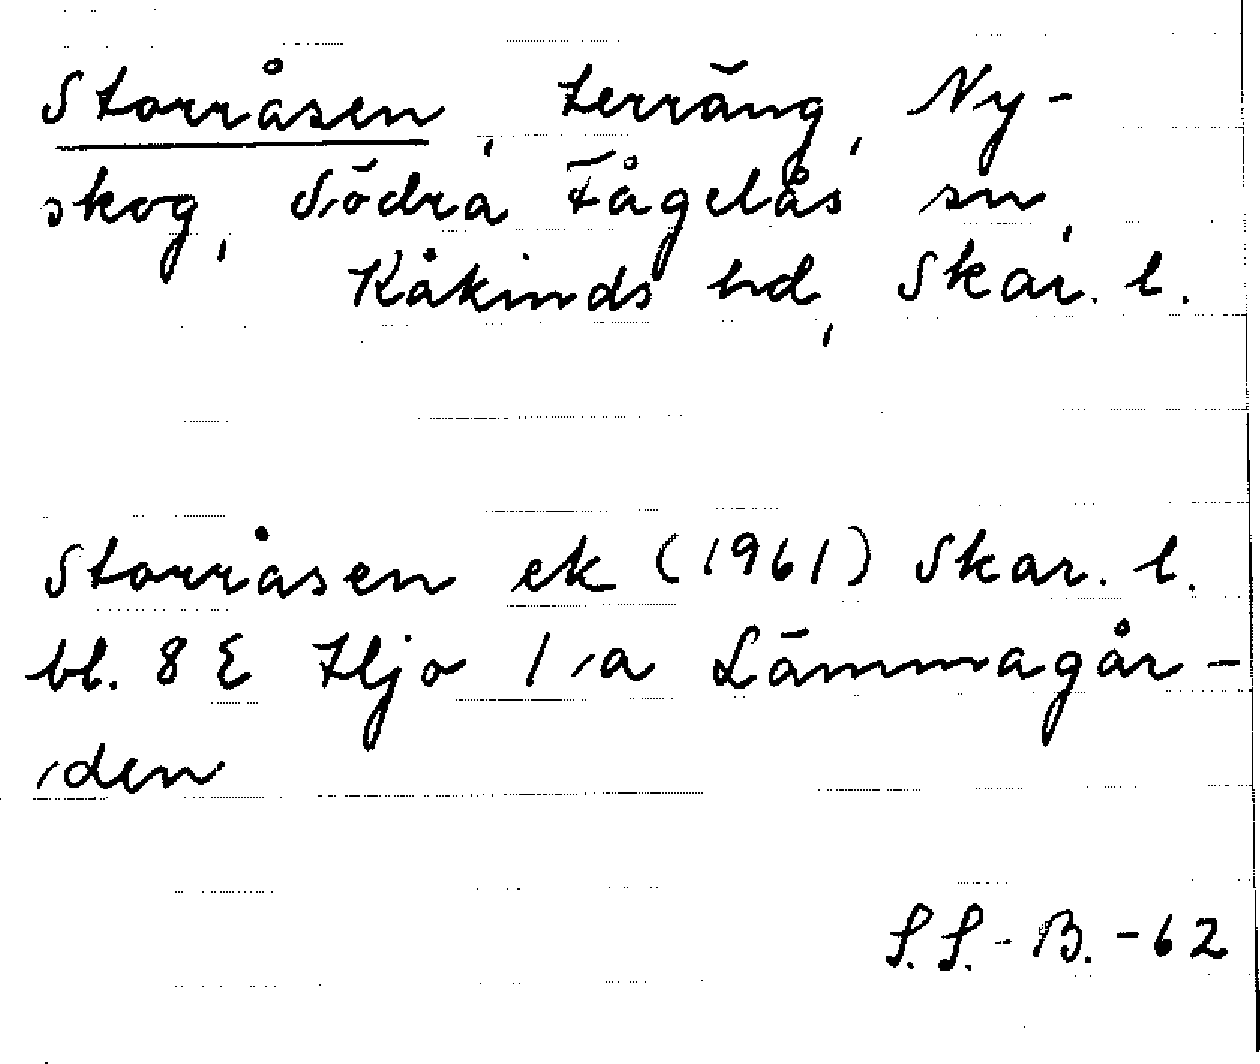 Storråsen, terräng, Ny-
skog, Södra Fågelås sn,
Kåkinds hd, Skar. l.
Storråsen ek (1961) Skar. l.
bl. 8 E Hjo 1 a Lämmagår-
den
S.S.-B.-62